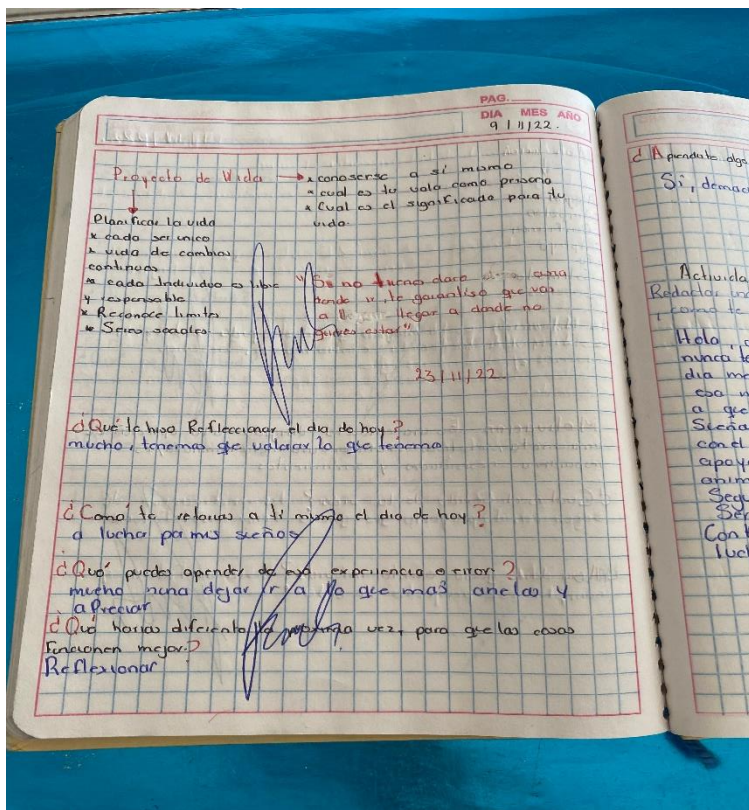 PAG.
DIA MES AÑO
9/11/22.
Proyecto de Vida
x conoserse a sí mismo
x cual es tu valo como persona
x Cual es el significado para tu
vida.
Planificar la vida
x cada ser unico
x vida de cambios
continuos
x cada Individuo es libre
y responsable
x Reconoce limites
x Seres soailes
"Si no
donde ir, te garantiso que vas
a llegar a donde no
quieres estar"
23/11/22
¿Qué le hiso Refleccionar el dia de hoy?
mucho, tenemos que valorar lo que tenemos
¿Como te retarias a ti mismo el dia de hoy?
a luchar pa mis sueños
¿Qué puedes aprender de esa experiencia o error?
mucho nuna dejar ir a lo que mas anelas y
apreciar
¿Qué harias diferente la vez, para que las cosas
funcionen mejor?
Reflexionar
¿Aprendiste algo
Si,
Activida
Redactar
, como te
Hola,
nunca
dia
eso
a que
con el
apoy
anim
Segu
Ser
Con
luch